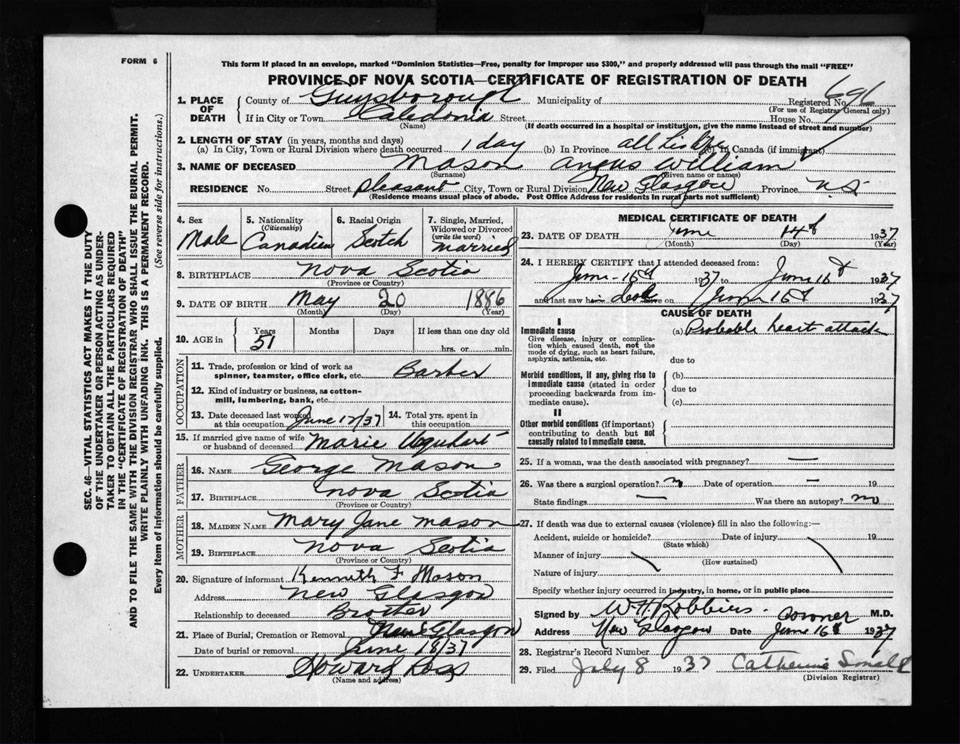 FORM 6
This form if placed in an envelope, marked "Dominion Statistics—Free, penalty for improper use $300," and properly addressed will pass through the mail "FREE"
PROVINCE OF NOVA SCOTIA—CERTIFICATE OF REGISTRATION OF DEATH
SEC. 46—VITAL STATISTICS ACT MAKES IT THE DUTY
OF THE UNDERTAKER OR PERSON ACTING AS UNDER-
TAKER TO OBTAIN ALL THE PARTICULARS REQUIRED
IN THE "CERTIFICATE OF REGISTRATION OF DEATH"
AND TO FILE THE SAME WITH THE DIVISION REGISTRAR WHO SHALL ISSUE THE BURIAL PERMIT.
WRITE PLAINLY WITH UNFADING INK. THIS IS A PERMANENT RECORD.
Every item of Information should be carefully supplied. (See reverse side for instructions.)
1. PLACE OF DEATH County of Guysborough Municipality of Registered No. 696
(For use of Registrar General only)
If in City or Town Caledonia Street House No.
(Name) (If death occurred in a hospital or institution, give the name instead of street and number)
2. LENGTH OF STAY (in years, months and days)
(a) In City, Town or Rural Division where death occurred 1 day (b) In Province all his life (c) In Canada (if immigrant)
3. NAME OF DECEASED Mason Angus William
(Surname) (Given name or names)
RESIDENCE No. Street Pleasant City, Town or Rural Division New Glasgow Province N.S.
(Residence means usual place of abode. Post Office Address for residents in rural parts not sufficient)
4. Sex Male
5. Nationality (Citizenship) Canadian
6. Racial Origin Scotch
7. Single, Married, Widowed or Divorced (write the word) married
8. BIRTHPLACE Nova Scotia
(Province or Country)
9. DATE OF BIRTH May 20 1886
(Month) (Day) (Year)
10. AGE in Years 51 Months Days If less than one day old
hrs. or min.
OCCUPATION
11. Trade, profession or kind of work as spinner, teamster, office clerk, etc. Barber
12. Kind of industry or business, as cotton-mill, lumbering, bank, etc.
13. Date deceased last worked at this occupation June 13/37 14. Total yrs. spent in this occupation
15. If married give name of wife or husband of deceased Marie Urquhart
FATHER
16. NAME George Mason
17. BIRTHPLACE Nova Scotia
(Province or Country)
MOTHER
18. MAIDEN NAME Mary Jane Mason
19. BIRTHPLACE Nova Scotia
(Province or Country)
20. Signature of informant Kenneth F Mason
Address New Glasgow
Relationship to deceased Brother
21. Place of Burial, Cremation or Removal New Glasgow
Date of burial or removal June 18/37
22. UNDERTAKER Howard Ross
(Name and address)
MEDICAL CERTIFICATE OF DEATH
23. DATE OF DEATH June 14th 1937
(Month) (Day) (Year)
24. I HEREBY CERTIFY that I attended deceased from:
June 1937 to June 16th 1937
and last saw h alive on June 16th 1937
CAUSE OF DEATH
I
Immediate cause (a) Probable heart attack
Give disease, injury or complica-
tion which caused death, not the
mode of dying, such as heart failure,
asphyxia, asthenia, etc.
due to
Morbid conditions, if any, giving rise to (b)
immediate cause (stated in order
proceeding backwards from im-
mediate cause).
due to
(c)
II
Other morbid conditions (if important)
contributing to death but not
causally related to immediate cause.
25. If a woman, was the death associated with pregnancy? —
26. Was there a surgical operation? no Date of operation — 19
State findings — Was there an autopsy? no
27. If death was due to external causes (violence) fill in also the following:—
Accident, suicide or homicide? Date of injury 19
(State which)
Manner of injury
(How sustained)
Nature of injury
Specify whether injury occurred in industry, in home, or in public place
Signed by W H Robbins Coroner M.D.
Address New Glasgow Date June 16th 1937
28. Registrar's Record Number
29. Filed July 8 1937 Catherine
(Division Registrar)